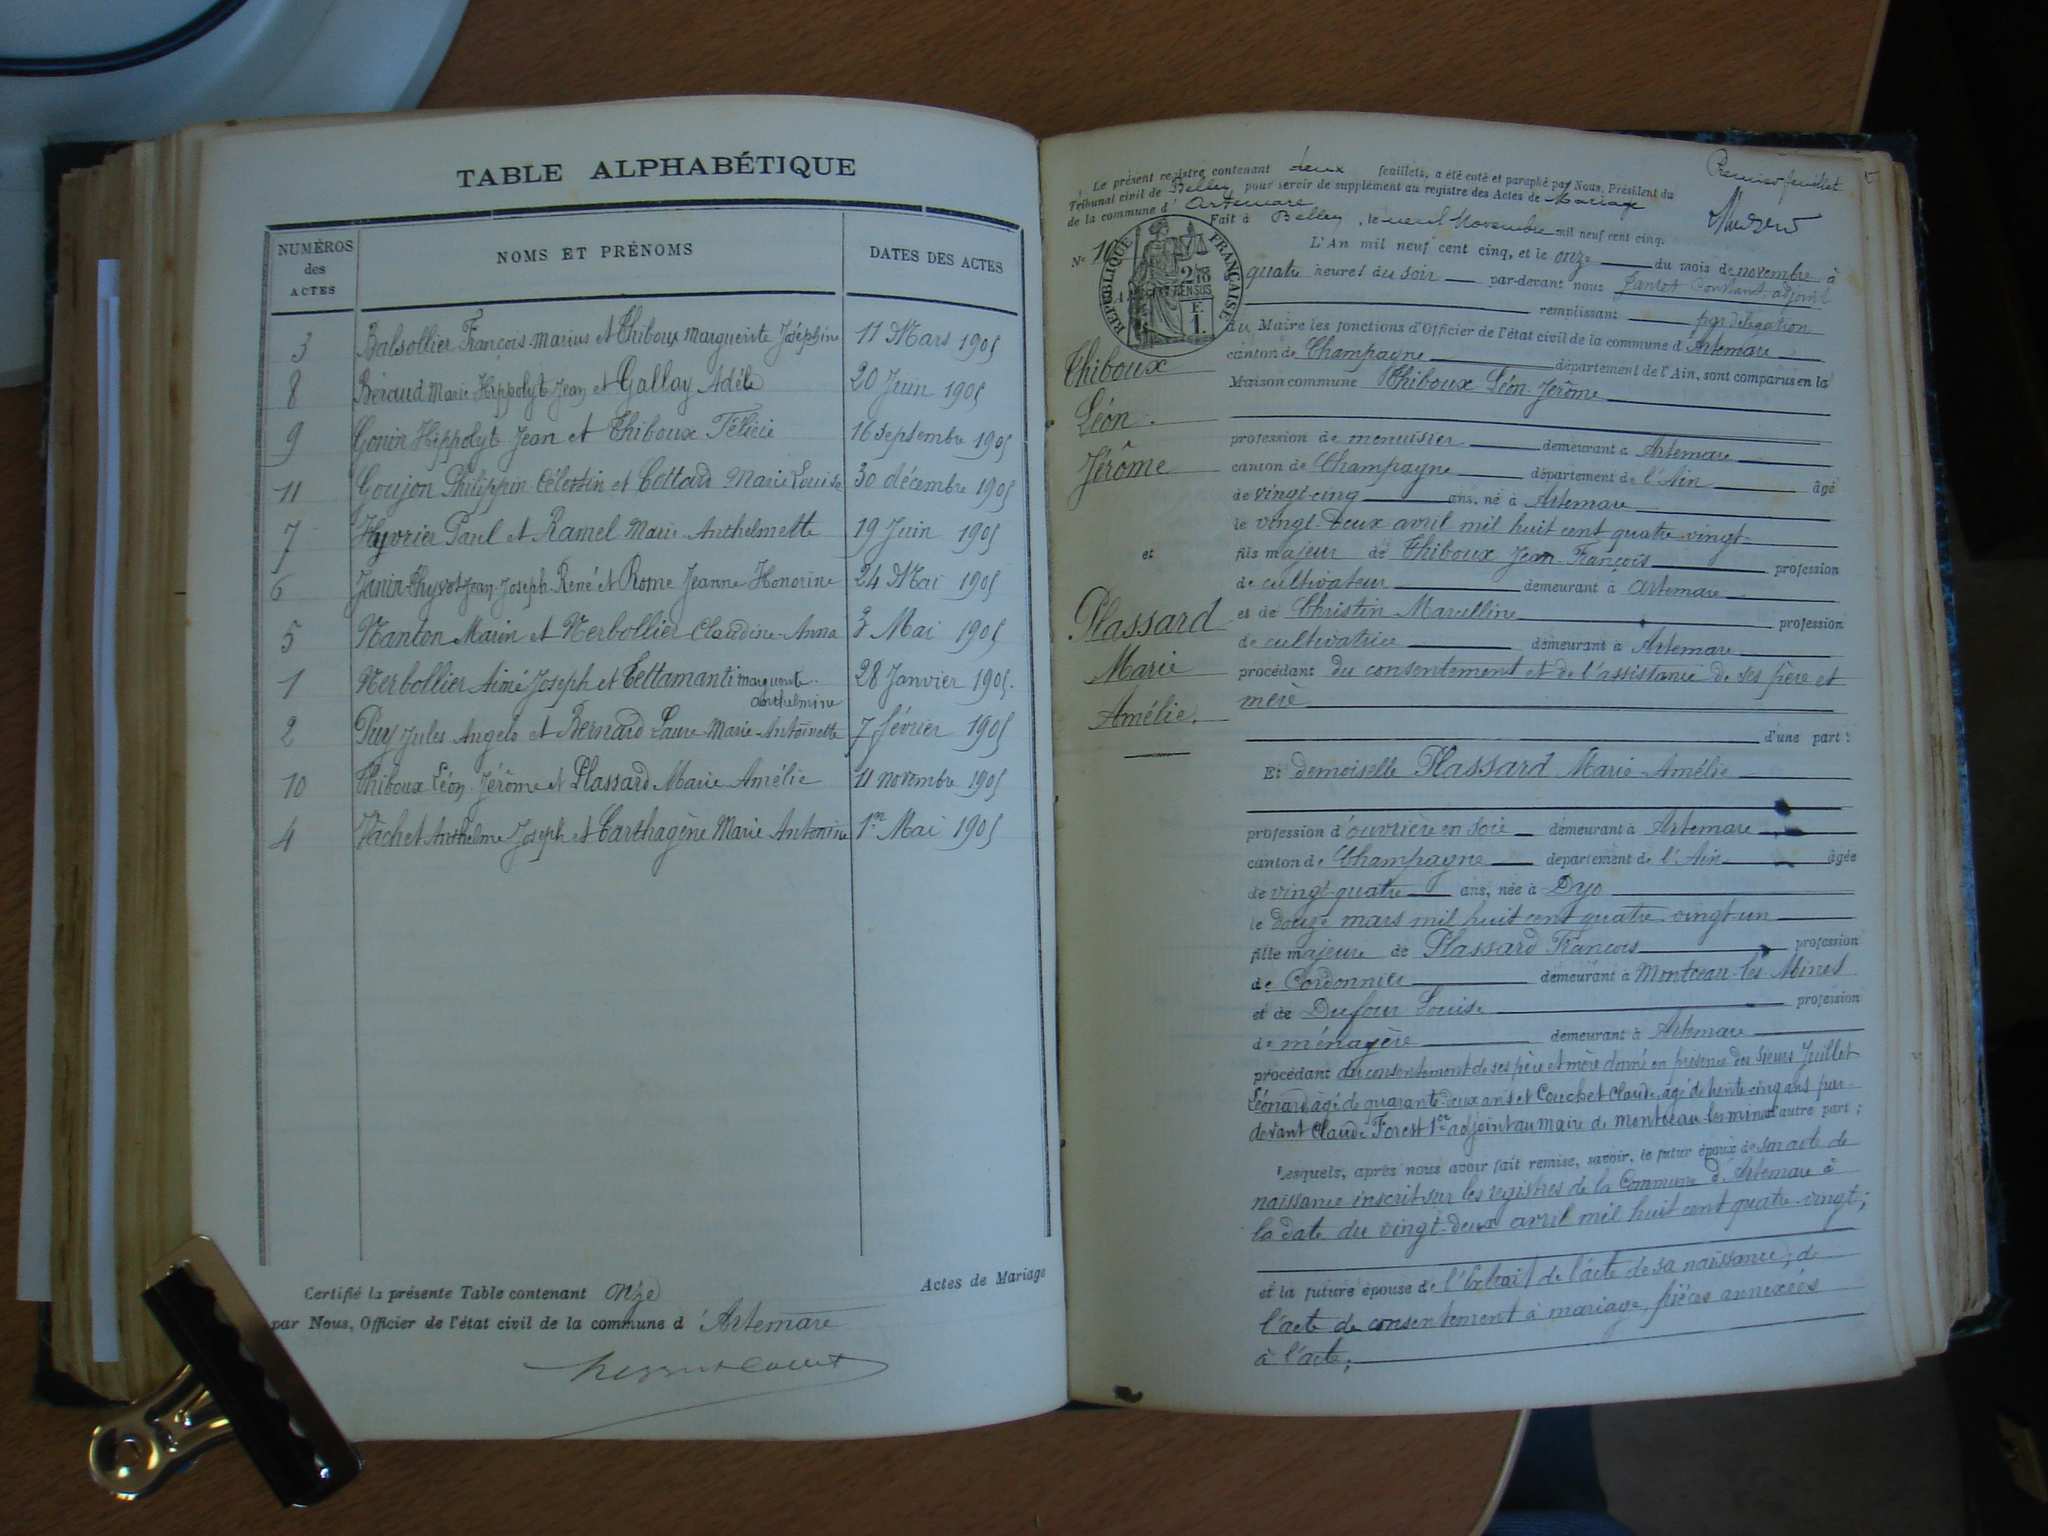 TABLE ALPHABÉTIQUE
NUMÉROS des ACTES
NOMS ET PRÉNOMS
DATES DES ACTES
3 Balsollier François-Marius et Thiboux Marguerite Joséphine 11 Mars 1905
8 Béraud Marie Hippolyt Jean et Gallay Adèle 20 Juin 1905
9 Gonin Hippolyt Jean et Thiboux Félicie 16 septembre 1905
11 Goujon Philippin Célestin et Cottard Marie Louise 30 décembre 1905
7 Hyvrier Paul et Ramel Marie Anthelmette 19 Juin 1905
6 Janin-Thyvot Jean-Joseph-René et Rome Jeanne Honorine 24 Mai 1905
5 Nanton Marin et Nerbollier Claudine-Anna 3 Mai 1905
1 Nerbollier Aimé Joseph et Tettamanti Marguerite 28 Janvier 1905.
Anthelmine
2 Puy Jules Angelo et Bernard Laure Marie-Antoinette 7 février 1905
10 Thiboux Léon Jérôme et Plassard Marie Amélie 11 novembre 1905
4 Vachet Anthelme Joseph et Carthagène Marie Antonine 1er Mai 1905
Certifié la présente Table contenant onze Actes de Mariage
par Nous, Officier de l'état civil de la commune d'Artemare
Premier feuillet
Le présent registre contenant deux feuillets, a été coté et paraphé par Nous, Président du
Tribunal civil de Belley pour servir de supplément au registre des Actes de Mariage
de la commune d'Artemare
Fait à Belley, le neuf Novembre mil neuf cent cinq.
No 10
RÉPUBLIQUE FRANÇAISE
F. 1.
L'An mil neuf cent cinq, et le onze du mois de novembre à
quatre heures du soir par-devant nous Constant, adjoint
remplissant par délégation
du Maire les fonctions d'Officier de l'état civil de la commune d'Artemare
canton de Champagne département de l'Ain, sont comparus en la
Maison commune Thiboux Léon-Jérôme
Thiboux
Léon.
Jérôme
et
Plassard
Marie
Amélie.
profession de menuisier demeurant à Artemare
canton de Champagne département de l'Ain âgé
de vingt-cinq ans, né à Artemare
le vingt-deux avril mil huit cent quatre vingt
fils majeur de Thiboux Jean-François profession
de cultivateur demeurant à Artemare
et de Christin Marcelline profession
de cultivatrice demeurant à Artemare
procédant du consentement et de l'assistance de ses père et
mère
d'une part :
Et demoiselle Plassard Marie-Amélie
profession d'ouvrière en soie demeurant à Artemare
canton de Champagne département de l'Ain âgée
de vingt-quatre ans, née à Dyo
le douze mars mil huit cent quatre-vingt-un
fille majeure de Plassard François profession
de Cordonnier demeurant à Montceau-les-Mines
et de Dufour Louise profession
de ménagère demeurant à Artemare
procédant du consentement de ses père et mère donné en présence des sieurs Juillet
Léonard âgé de quarante-deux ans et Couchet Claude, âgé de trente-cinq ans par-
devant Claude Forest 1er adjoint au maire de Montceau-les-mines d'autre part ;
Lesquels, après nous avoir fait remise, savoir, le futur époux de son acte de
naissance inscrit sur les registres de la Commune d'Artemare à
la date du vingt-deux avril mil huit cent quatre-vingt ;
et la future épouse de l'Extrait de l'acte de sa naissance ; de
l'acte de consentement à mariage, pièces annexées
à l'acte ;